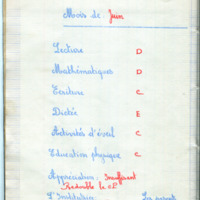 Mois de Juin
Lecture D
Mathématiques D
Ecriture C
Dictée E
Activités d'éveil C
Education physique C
Appréciation : Insuffisant
Redouble le CP
L'Institutrice Les parents